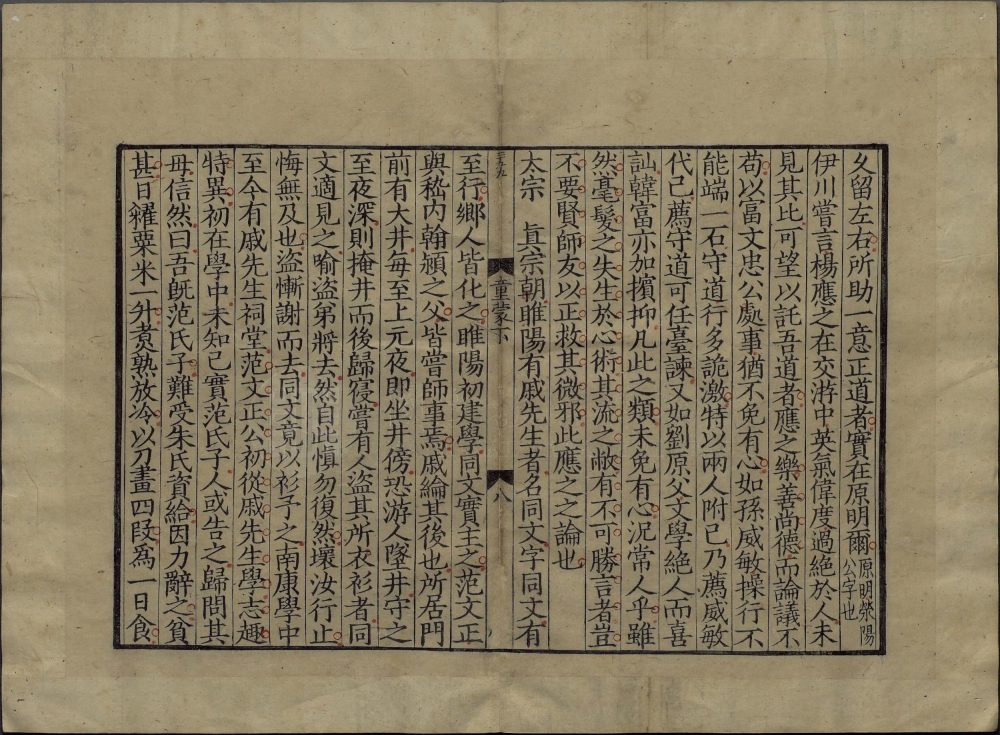 久留左右所助一意正道者實在原明爾原明滎陽
公字也
伊川嘗言楊應之在交游中英氣偉度過絕於人未
見其比可望以託吾道者應之樂善尚德而論議不
苟以富文忠公處事猶不免有心如孫威敏操行不
能端一石守道行多詭激特以兩人附已乃薦威敏
代己薦守道可任臺諫又如劉原父文學絕人而喜
訕韓富亦加擯抑凡此之類未免有心況常人乎雖
然毫髮之失生於心術其流之敝有不可勝言者豈
不要賢師友以正救其微邪此應之之論也
太宗　眞宗朝睢陽有戚先生者名同文字同文有
童蒙下
八
至行鄉人皆化之睢陽初建學同文實主之范文正
與嵇內翰潁之父皆嘗師事焉戚綸其後也所居門
前有大井每至上元夜即坐井傍恐游人墜井守之
至夜深則掩井而後歸寢嘗有人盜其所衣衫者同
文適見之喻盜弟將去然自此愼勿復然壞汝行止
悔無及也盜慚謝而去同文竟以衫予之南康學中
至今有戚先生祠堂范文正公初從戚先生學志趣
特異初在學中未知己實范氏子人或告之歸問其
母信然曰吾旣范氏子難受朱氏資給因力辭之貧
甚日糴粟米一升煮熟放冷以刀畫四段爲一日食